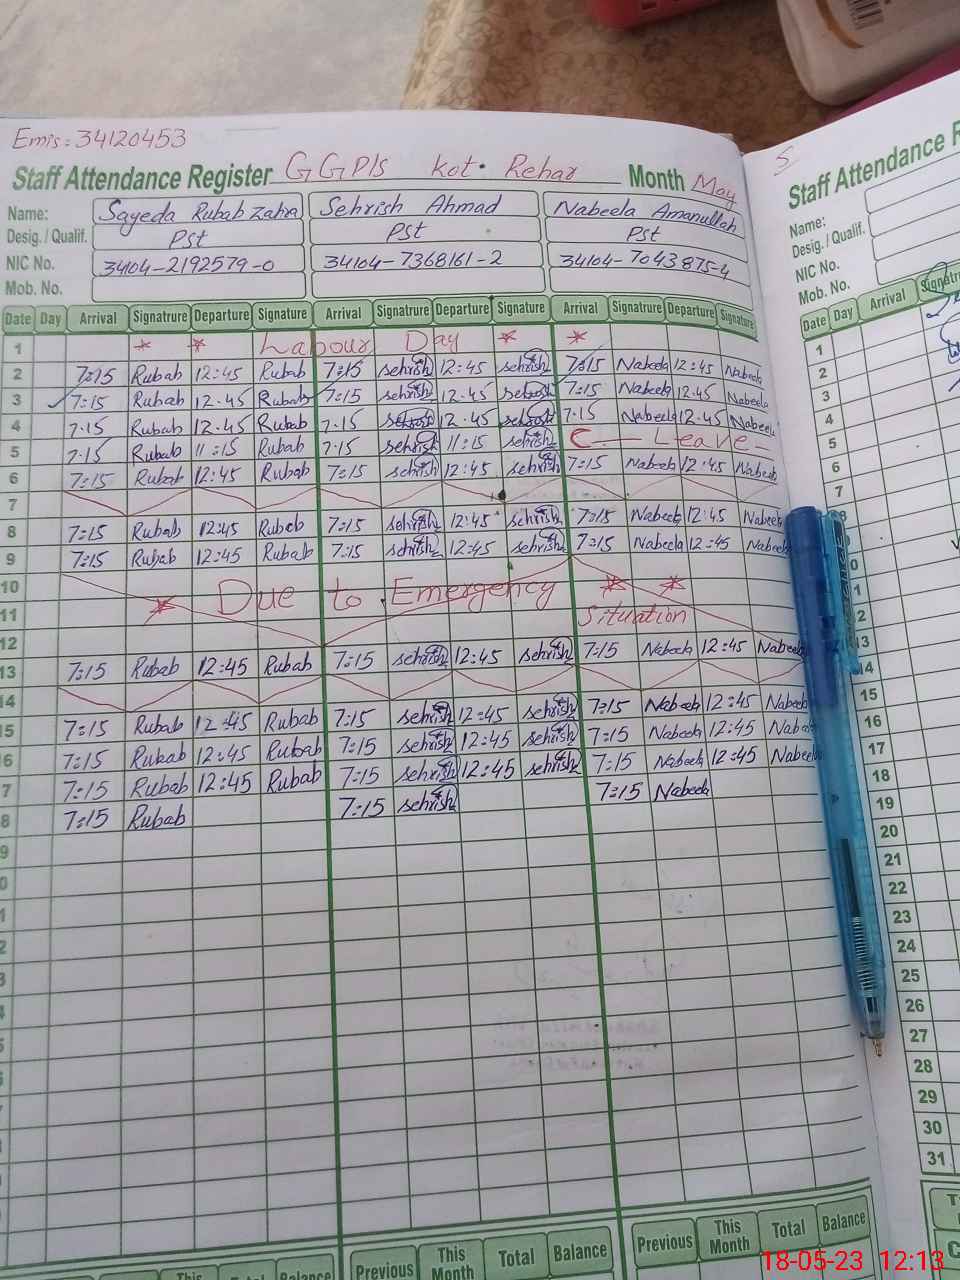 Emis: 34120453
Staff Attendance Register GGPIs Kot. Rehar Month May
Name: Sayeda Rubab Zahra Sehrish Ahmad Nabeela Amanullah
Desig. / Qualif. Pst Pst Pst
NIC No. 34104-2192579-0 34104-7368161-2 34104-7043875-4
Mob. No.
Date Day Arrival Signatrure Departure Signature Arrival Signatrure Departure Signature Arrival Signatrure Departure Signature
1 * * Labour Day * *
2 7:15 Rubab 12:45 Rubab 7:15 sehrish 12:45 sehrish 7:15 Nabeela 12:45 Nabeela
3 7:15 Rubab 12.45 Rubab 7:15 sehrish 12.45 sehrish 7:15 Nabeela 12.45 Nabeela
4 7.15 Rubab 12.45 Rubab 7.15 sehrish 12.45 sehrish 7.15 Nabeela 12.45 Nabeela
5 7.15 Rubab 11:15 Rubab 7.15 sehrish 11:15 sehrish C — Leave -
6 7:15 Rubab 12:45 Rubab 7:15 sehrish 12:45 sehrish 7:15 Nabeela 12:45 Nabeela
7
8 7:15 Rubab 12:45 Rubab 7:15 sehrish 12:45 sehrish 7:15 Nabeela 12:45 Nabeela
9 7:15 Rubab 12:45 Rubab 7:15 sehrish 12:45 sehrish 7:15 Nabeela 12:45 Nabeela
10 * Due to Emergency * *
11 Situation
12
13 7:15 Rubab 12:45 Rubab 7:15 sehrish 12:45 sehrish 7:15 Nabeela 12:45 Nabeela
14
15 7:15 Rubab 12:45 Rubab 7:15 sehrish 12:45 sehrish 7:15 Nabeela 12:45 Nabeela
6 7:15 Rubab 12:45 Rubab 7:15 sehrish 12:45 sehrish 7:15 Nabeela 12:45 Nabeela
7 7:15 Rubab 12:45 Rubab 7:15 sehrish 12:45 sehrish 7:15 Nabeela 12:45 Nabeela
8 7:15 Rubab 7:15 sehrish 7:15 Nabeela
This Month Total Balance Previous This Month Total Balance Previous This Month Total Balance
Staff Attendance
Name:
Desig. / Qualif.
NIC No.
Mob. No.
Date Day Arrival
1
2
3
4
5
6
7
15
16
17
18
19
20
21
22
23
24
25
26
27
28
29
30
31
18-05-23 12:13